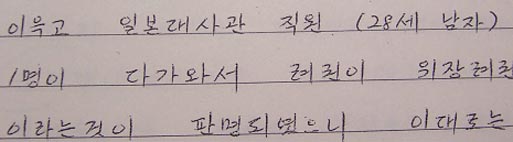 이윽고 일본대사관 직원 (28세 남자)
1명이 다가와서 려권이 위장려권
이라는것이 판명되였으니 이대로는